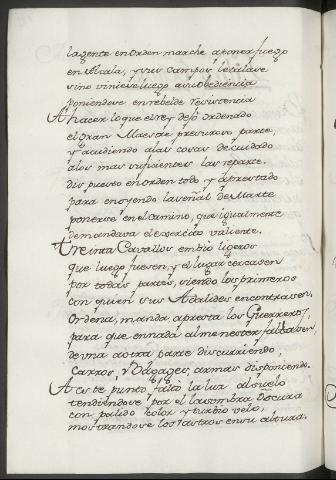 la gente en orden marche a poner fuego
en Alcala, y sus campos le tale
si no viniese luego a su obediencia
poniendose en rebelde resistencia
A hacer lo que el rey dejo ordenado
el gran Maestre presuroso parte,
y acudiendo a las cosas de cuidado
a los mas suficientes las reparte.
dispuesto en orden todo y aprestado
para en oyendo la señal de Marte
ponerse en el camino, que igualmente
demandava el exercito valiente.
Treinta Cavallos embio ligeros
que luego fuesen, y el lugar cercasen
por todas partes, siendo los primeros
con quien sus Adalides encontrasen,
Ordena, manda apresta los Guerreros,
para que en nada al menester faltasen,
de una a otra parte discurriendo,
Carros, y Bagages, armas disponiendo.
A este punto falto la luz al suelo
tendiendose por el la sombra oscura
con palido color y turbio velo,
mostrandose los Astros en su altura.